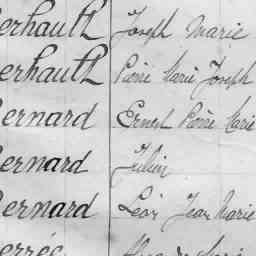 erhault Joseph Marie
erhault Pierre Marie Joseph
ernard Ernest Pierre Marie
ernard Julien
ernard Léon Jean Marie
errée Marie